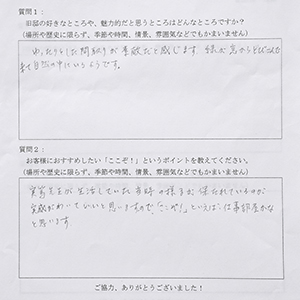 質問1：
旧邸の好きなところや、魅力的だと思うところはどんなところですか？
（場所や歴史に限らず、季節や時間、情景、雰囲気などでもかまいません）
ゆったりとした間取りが素敵だと感じます
自然の中にいるようです。
質問2：
お客様におすすめしたい「ここぞ！」というポイントを教えてください。
（場所や歴史に限らず、季節や時間、情景、雰囲気などでもかまいません）
実篤先生が生活していた当時の様子が保たれているのが
実感がわいていいと思いますので、「ここぞ！」といえば、仕事部屋かな
と思います
ご協力、ありがとうございました！